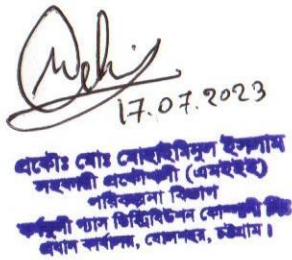 17.07.2023
প্রকৌঃ মোঃ মোহাইমিনুল ইসলাম
সহকারী প্রকৌশলী (এমইইই)
পরিকল্পনা বিভাগ
কর্ণফুলী গ্যাস ডিস্ট্রিবিউশন কোম্পানী লিঃ
প্রধান কার্যালয়, ষোলশহর, চট্টগ্রাম।